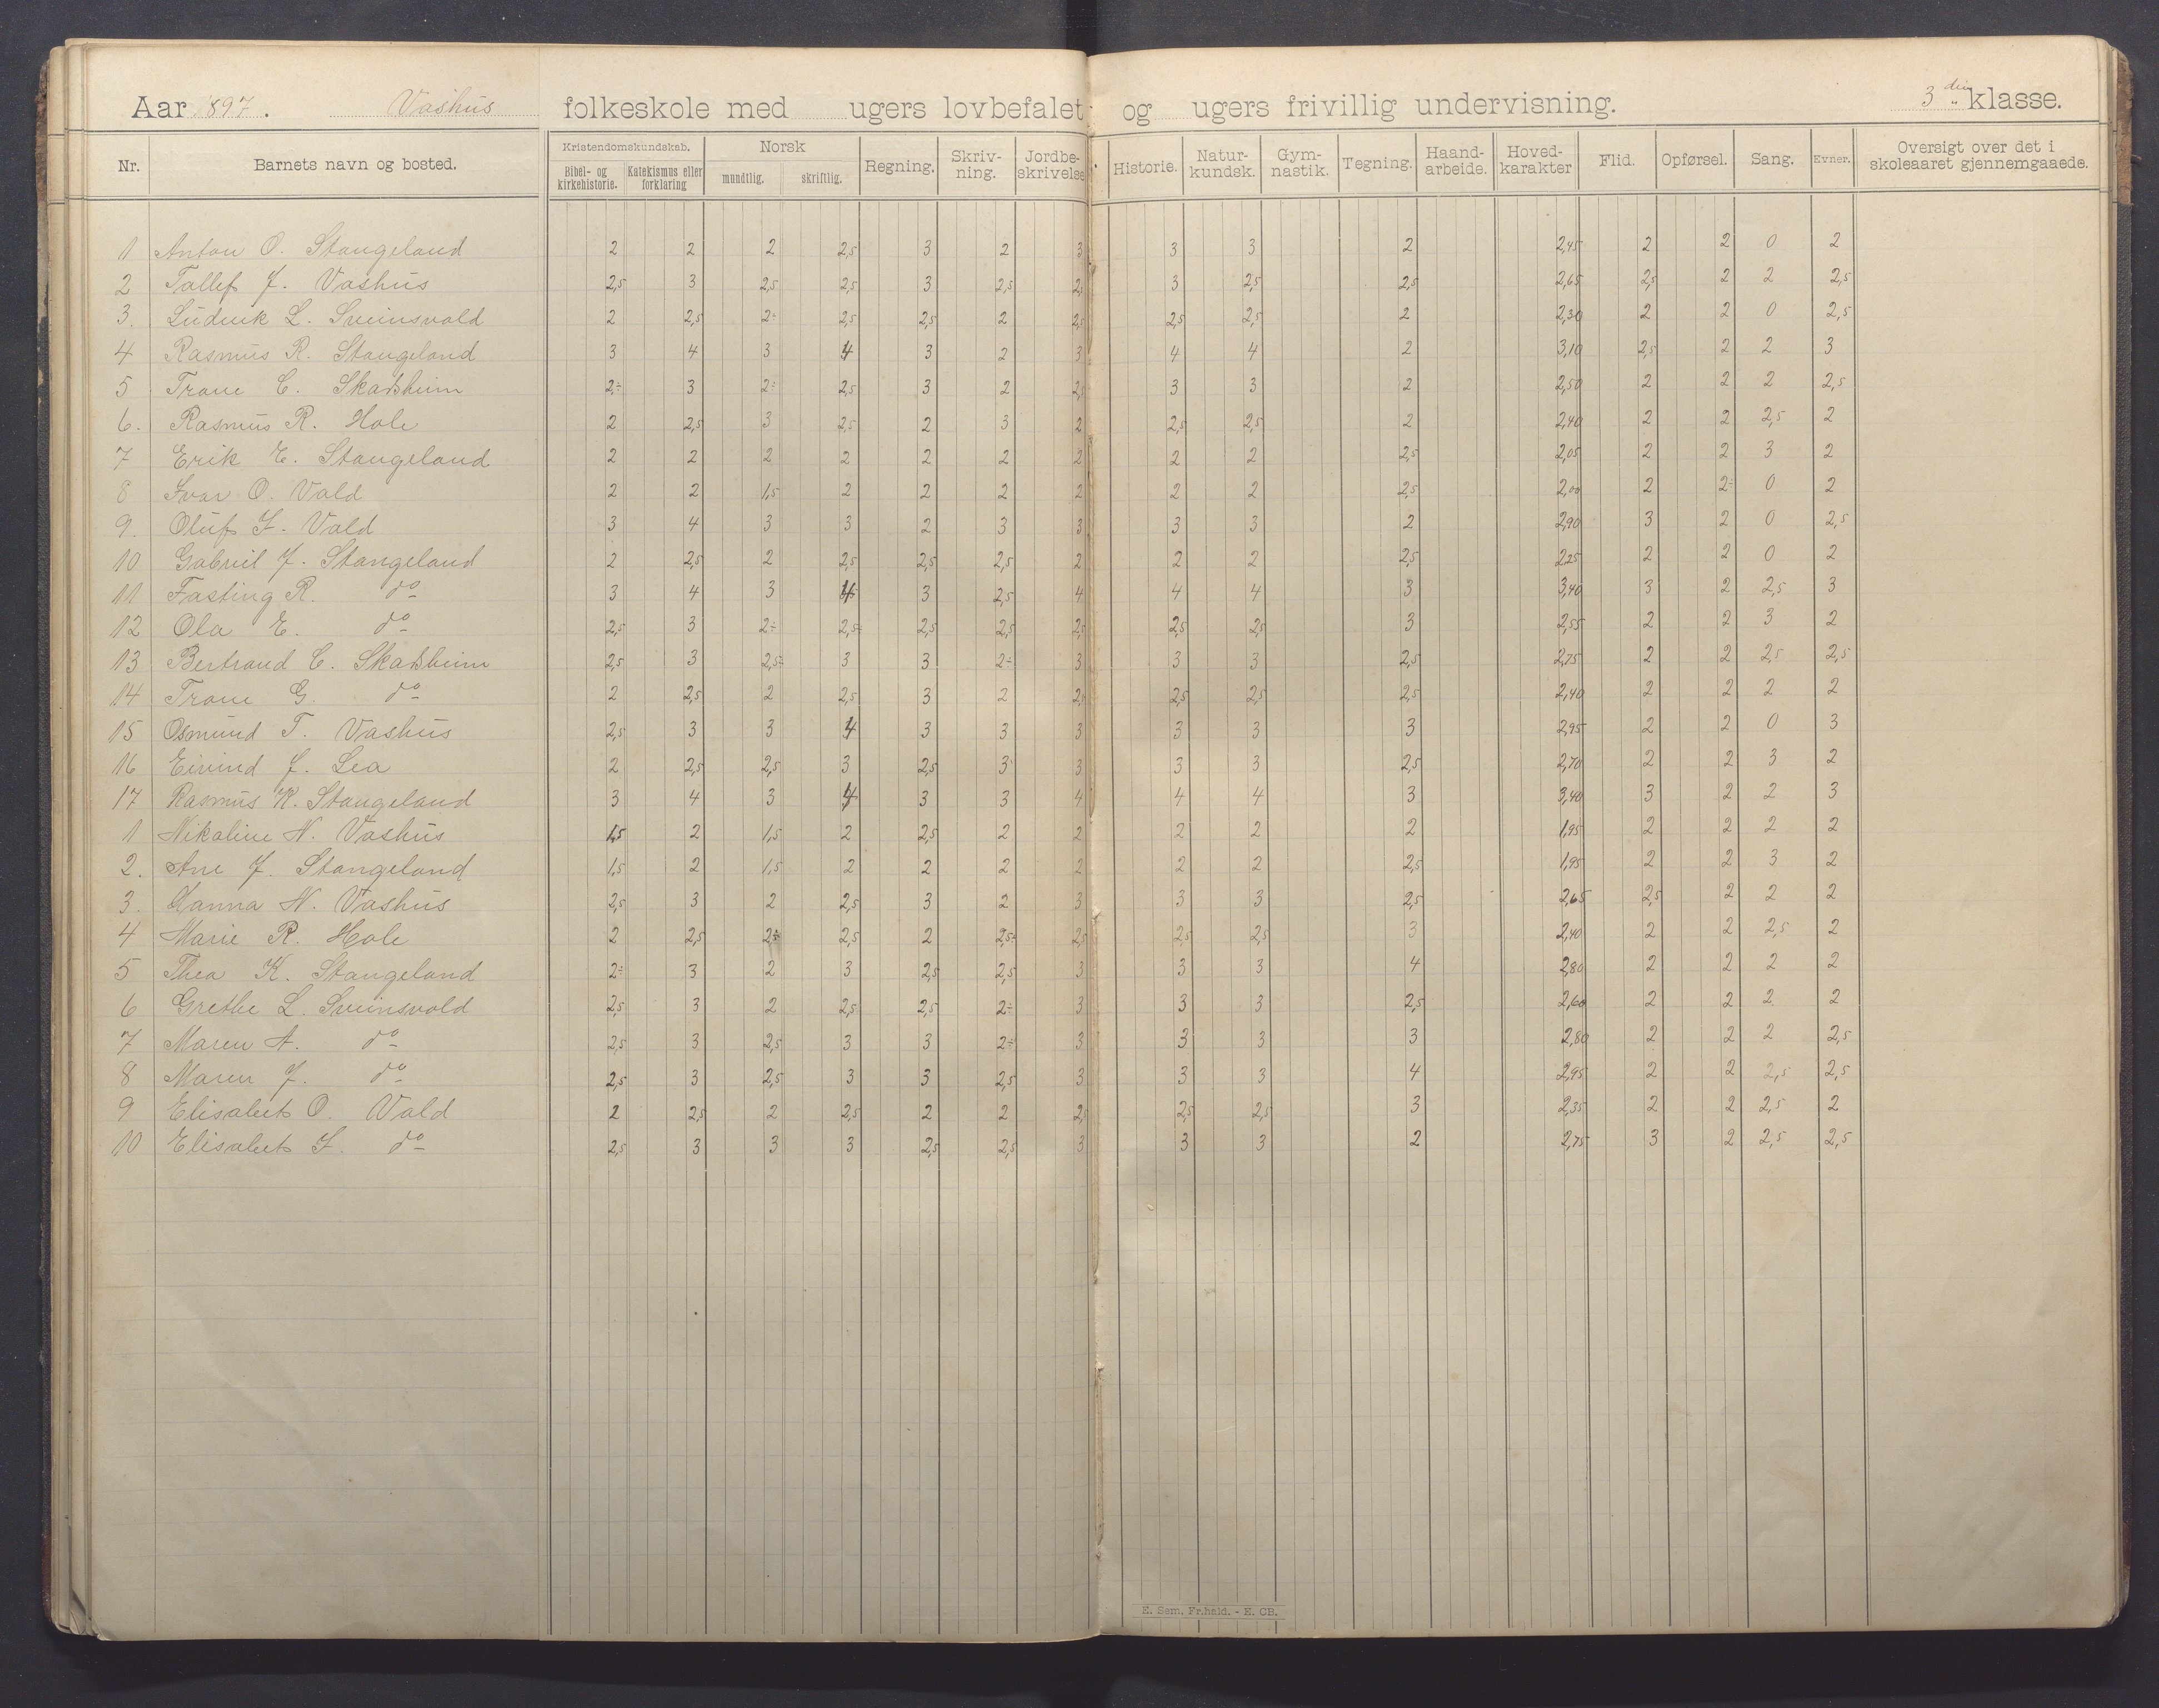 Aar 1897. Vashus folkeskole med ugers lovbefalet og ugers frivillig undervisning. 3die klasse.
Nr. Barnets navn og bosted. Kristendomskundskab. Bibel- og kirkehistorie. Katekismus eller forklaring Norsk mundtlig. skriftlig. Regning. Skriv-ning. Jordbe-skrivelse Historie. Natur-kundsk. Gym-nastik. Tegning. Haand-arbeide. Hoved-karakter Flid. Opførsel. Sang. Evner. Oversigt over det i skoleaaret gjennemgaaede.
1 Anton O. Stangeland 2 2 2 2,5 3 2 3 3 3 2 2,45 2 2 0 2
2 Tallef J. Vashus 2,5 3 2,5 2,5 3 2,5 2,5 3 2,5 2,5 2,65 2,5 2 2 2,5
3. Ludvik L. Sveinsvold 2 2,5 2÷ 2,5 2,5 2 2,5 2,5 2,5 2 2,30 2 2 0 2,5
4 Rasmus R. Stangeland 3 4 3 4 3 2 3 4 4 2 3,10 2,5 2 2 3
5 Trone C. Skadsheim 2÷ 3 2÷ 2,5 3 2 2,5 3 3 2 2,50 2 2 2 2,5
6. Rasmus R. Hole 2 2,5 3 2,5 2 3 2 2,5 2,5 2 2,40 2 2 2,5 2
7 Erik E. Stangeland 2 2 2 2 2 2 2 2 2 2,5 2,05 2 2 3 2
8 Ivar O. Vald 2 2 1,5 2 2 2 2 2 2 2,5 2,00 2 2÷ 0 2
9. Oluf I. Vald 3 4 3 3 2 3 3 3 3 2 2,90 3 2 0 2,5
10 Gabriel J. Stangeland 2 2,5 2 2,5 2,5 2,5 2 2 2 2,5 2,25 2 2 0 2
11 Fasting R. do 3 4 3 4 3 2,5 4 4 4 3 3,40 3 2 2,5 3
12 Ola E. do 2,5 3 2÷ 2,5 2,5 2,5 2,5 2,5 2,5 3 2,55 2 2 3 2
13 Bertrand C. Skadsheim 2,5 3 2,5÷ 3 3 2÷ 3 3 3 2,5 2,75 2 2 2,5 2,5
14 Trone G. do 2 2,5 2 2,5 3 2 2,5 2,5 2,5 2,5 2,40 2 2 2 2
15 Osmund T. Vashus 2,5 3 3 4 3 3 3 3 3 3 2,95 2 2 0 3
16 Eivind J. Lea 2 2,5 2,5 3 2,5 3 3 3 3 2,5 2,70 2 2 3 2
17 Rasmus K. Stangeland 3 4 3 4 3 3 4 4 4 3 3,40 3 2 2 3
1 Nikoline N. Vashus 1,5 2 1,5 2 2,5 2 2 2 2 2 1,95 2 2 2 2
2. Ane J. Stangeland 1,5 2 1,5 2 2 2 2 2 2 2,5 1,95 2 2 3 2
3. Hanna N. Vashus 2,5 3 2 2,5 3 2 3 3 3 2,5 2,65 2,5 2 2 2
4 Marie R. Hole 2 2,5 2÷ 2,5 2 2,5÷ 2,5 2,5 2,5 3 2,40 2 2 2,5 2
5 Thea K. Stangeland 2÷ 3 2 3 2,5 2,5 3 3 3 4 2,80 2 2 2 2
6 Grethe L. Sveinsvold 2,5 3 2 2,5 2,5 2÷ 3 3 3 2,5 2,60 2 2 2 2
7 Maren A. do 2,5 3 2,5 3 3 2÷ 3 3 3 3 2,80 2 2 2 2,5
8 Maren J. do 2,5 3 2,5 3 3 2,5 3 3 3 4 2,95 2 2 2,5 2,5
9 Elisabet O. Vald 2 2,5 2 2,5 2 2 2,5 2,5 2,5 3 2,35 2 2 2,5 2
10 Elisabet I. do 2,5 3 3 3 2,5 2,5 3 3 3 2 2,75 3 2 2,5 2,5
E. Sem, Fr.hald. - E. CB.